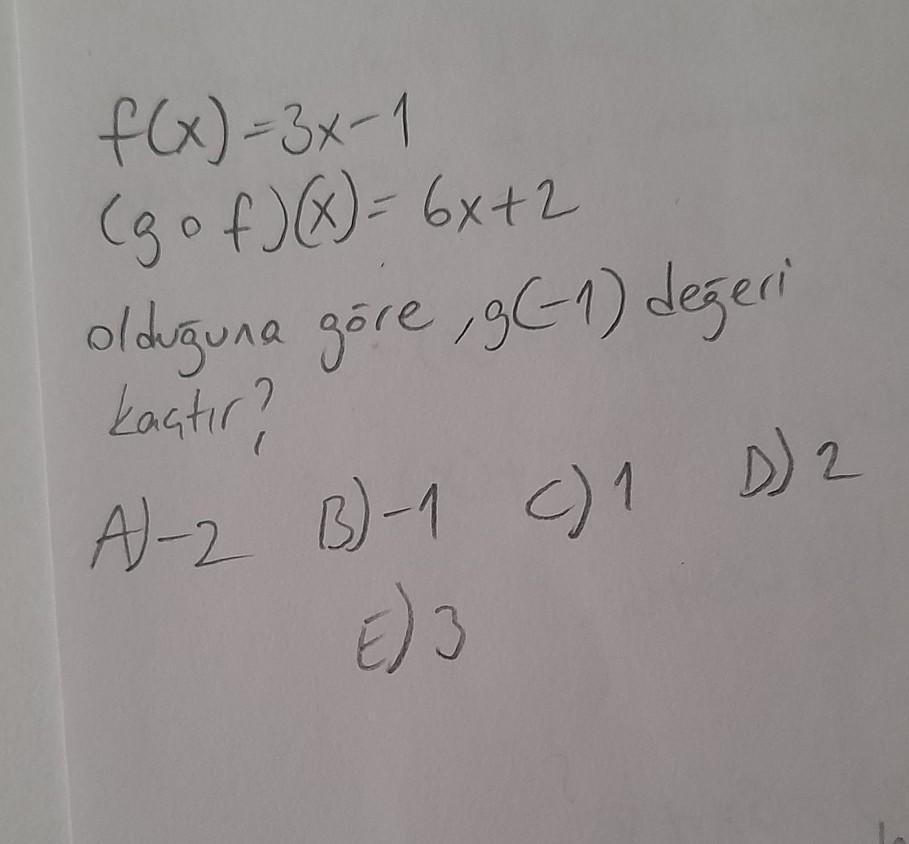 f(x)=3x-1
(gof)(x)= 6x+2
olduğuna göre, g(-1) değeri
kaçtır?
A)-2 B)-1 C)1 D)2
E)3